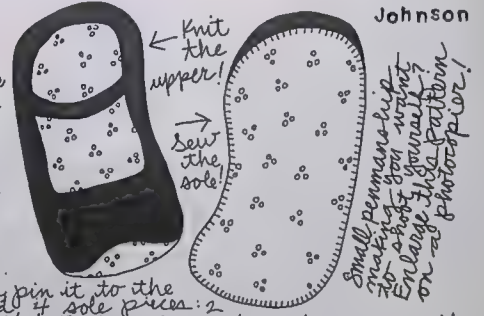 Johnson
Knit
the
upper!
Sew
the
sole!
Small penmanship
making you want
to shoot yourself?
Enlarge this pattern
on a photocopier!
pin it to the
4 sole pieces: 2